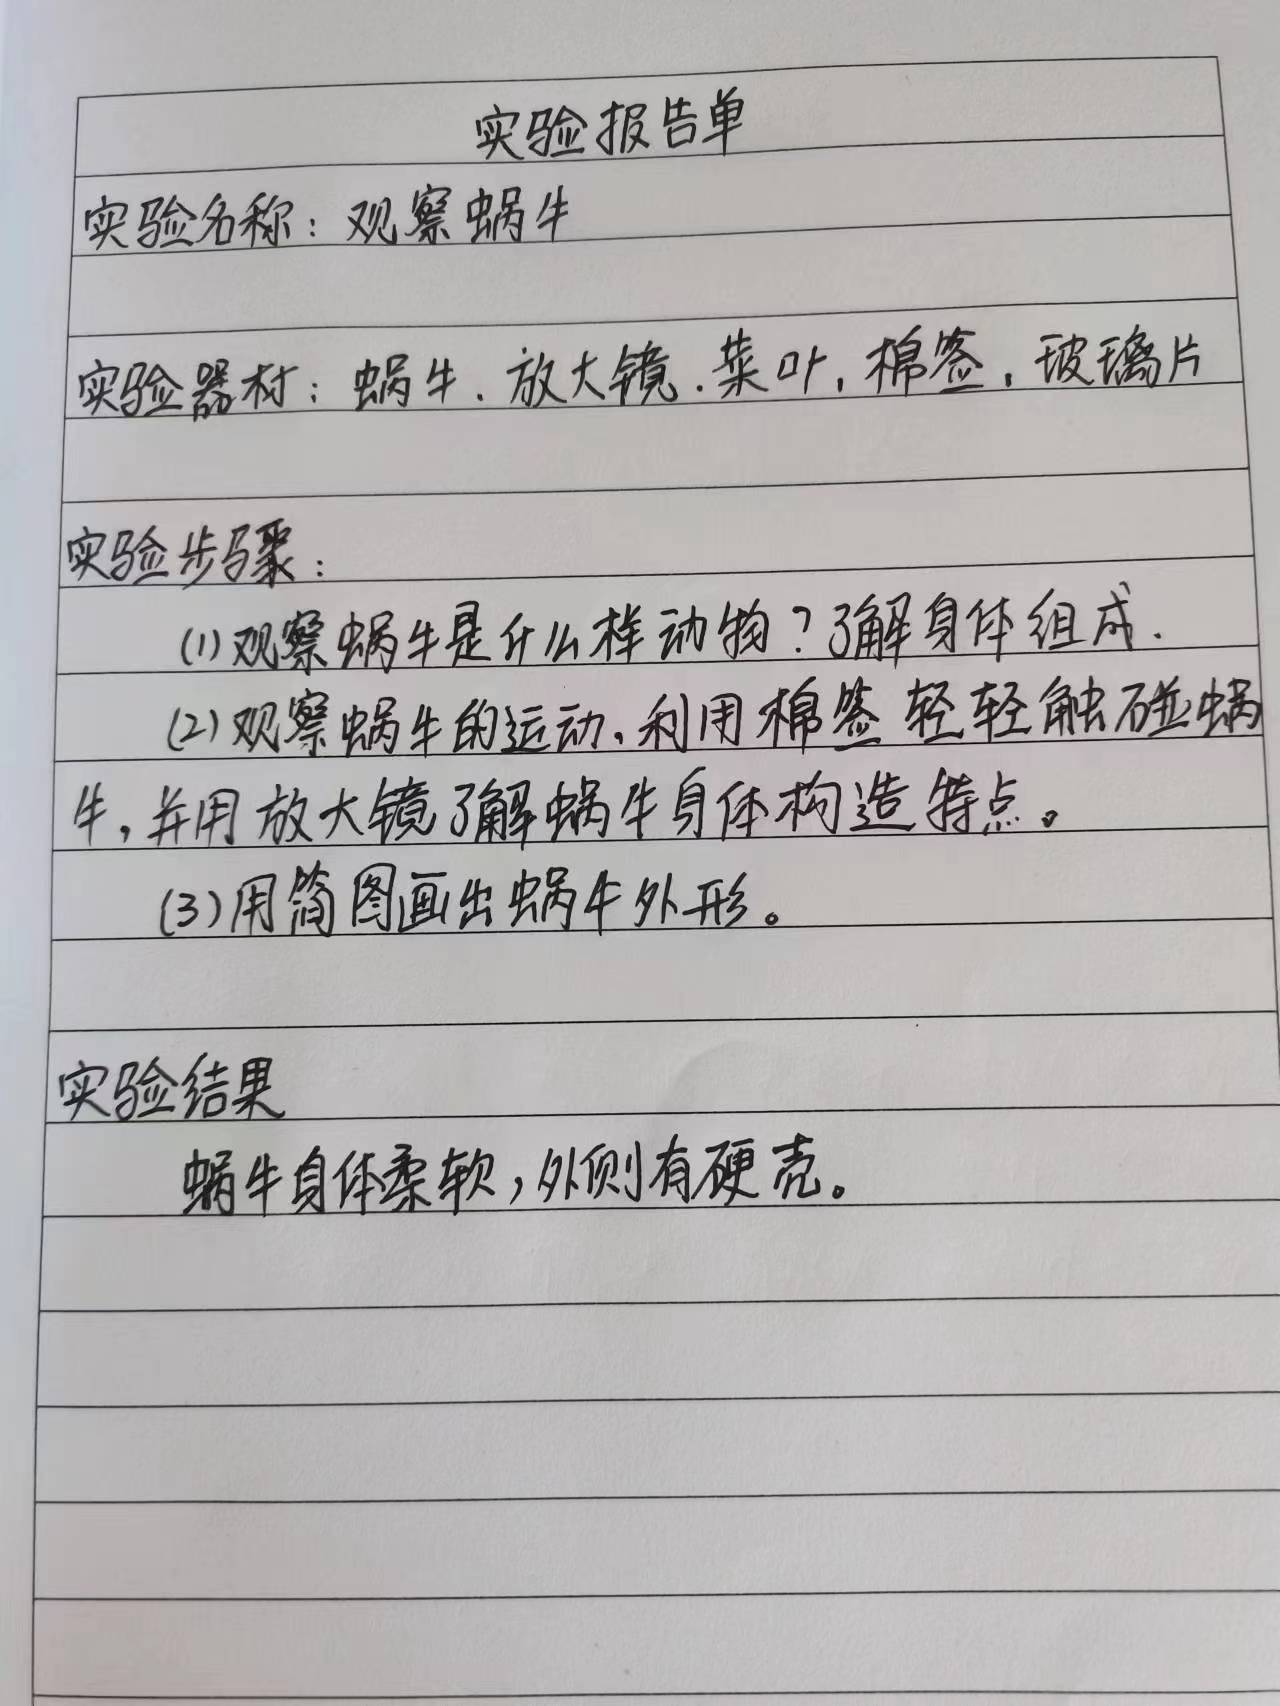 实验报告单
实验名称：观察蜗牛
实验器材：蜗牛.放大镜.菜叶,棉签,玻璃片
实验步骤：
(1)观察蜗牛是什么样动物?了解身体组成.
(2)观察蜗牛的运动,利用棉签轻轻触碰蜗
牛,并用放大镜了解蜗牛身体构造特点。
(3)用简图画出蜗牛外形。
实验结果
蜗牛身体柔软,外侧有硬壳。